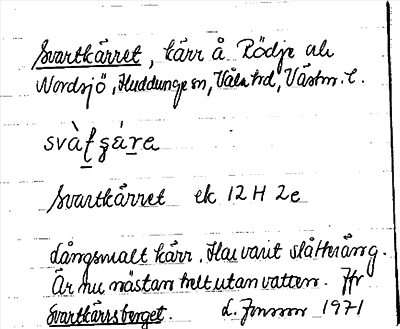 Svartkärret, kärr å Rödje al.
Nordsjö, Huddunge sn, Våla hd, Västm. l.
Svartkärret ek 12 H 2e
Långsmalt kärr. Har varit slåtteräng.
Är nu nästan helt utan vatten. Jfr
Svartkärrsberget. L. Jonsson 1971